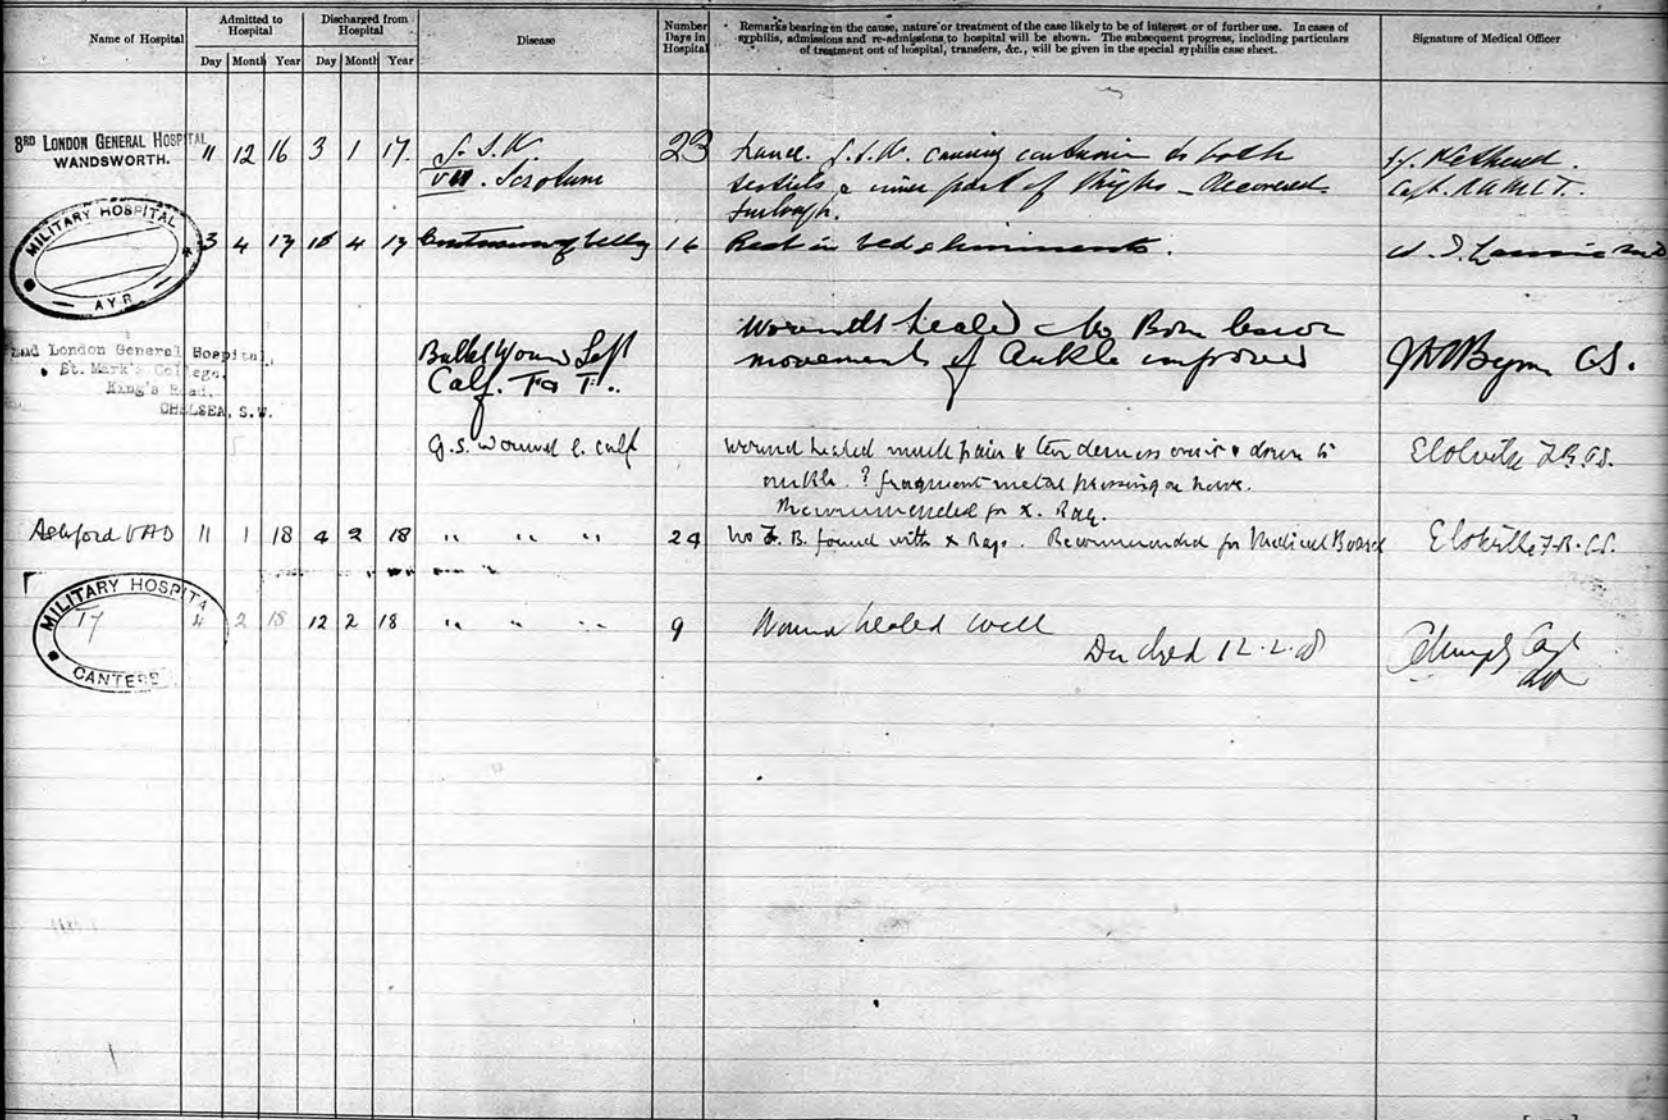 Name of Hospital
Admitted to Hospital
Discharged from Hospital
Disease
Number Days in Hospital
Remarks bearing on the cause, nature or treatment of the case likely to be of interest or of further use. In cases of
syphilis, admissions and re-admissions to hospital will be shown. The subsequent progress, including particulars
of treatment out of hospital, transfers, &c., will be given in the special syphilis case sheet.
Signature of Medical Officer
Day Month Year Day Month Year
8RD LONDON GENERAL HOSPITAL
WANDSWORTH.
11 12 16 3 1 17 Scrotum 23
causing contusion to both
testicles & inner part of thighs - Recovered.
Furlough.
Capt. R.A.M.C.T.
MILITARY HOSPITAL
AYR
3 4 17 4 17 16 Rest in bed & liniments.
2nd London General Hospital,
St. Mark's College,
King's Road,
CHELSEA, S.W.
Bullet Wound Left
Calf.
Wounds healed No Bone lesion
movements of Ankle improved
G.S. wound l. calf
wound healed much pain & tenderness over it & down to
ankle. ? fragment metal pressing on nerve.
Recommended for X. Ray.
Ashford VAD 11 1 18 4 2 18 " " " 24 No F. B. found with X Rays. Recommended for Medical Board
MILITARY HOSPITA
CANTERB
4 2 18 12 2 18 " " " 9 Wound healed well
12.2.18
Capt